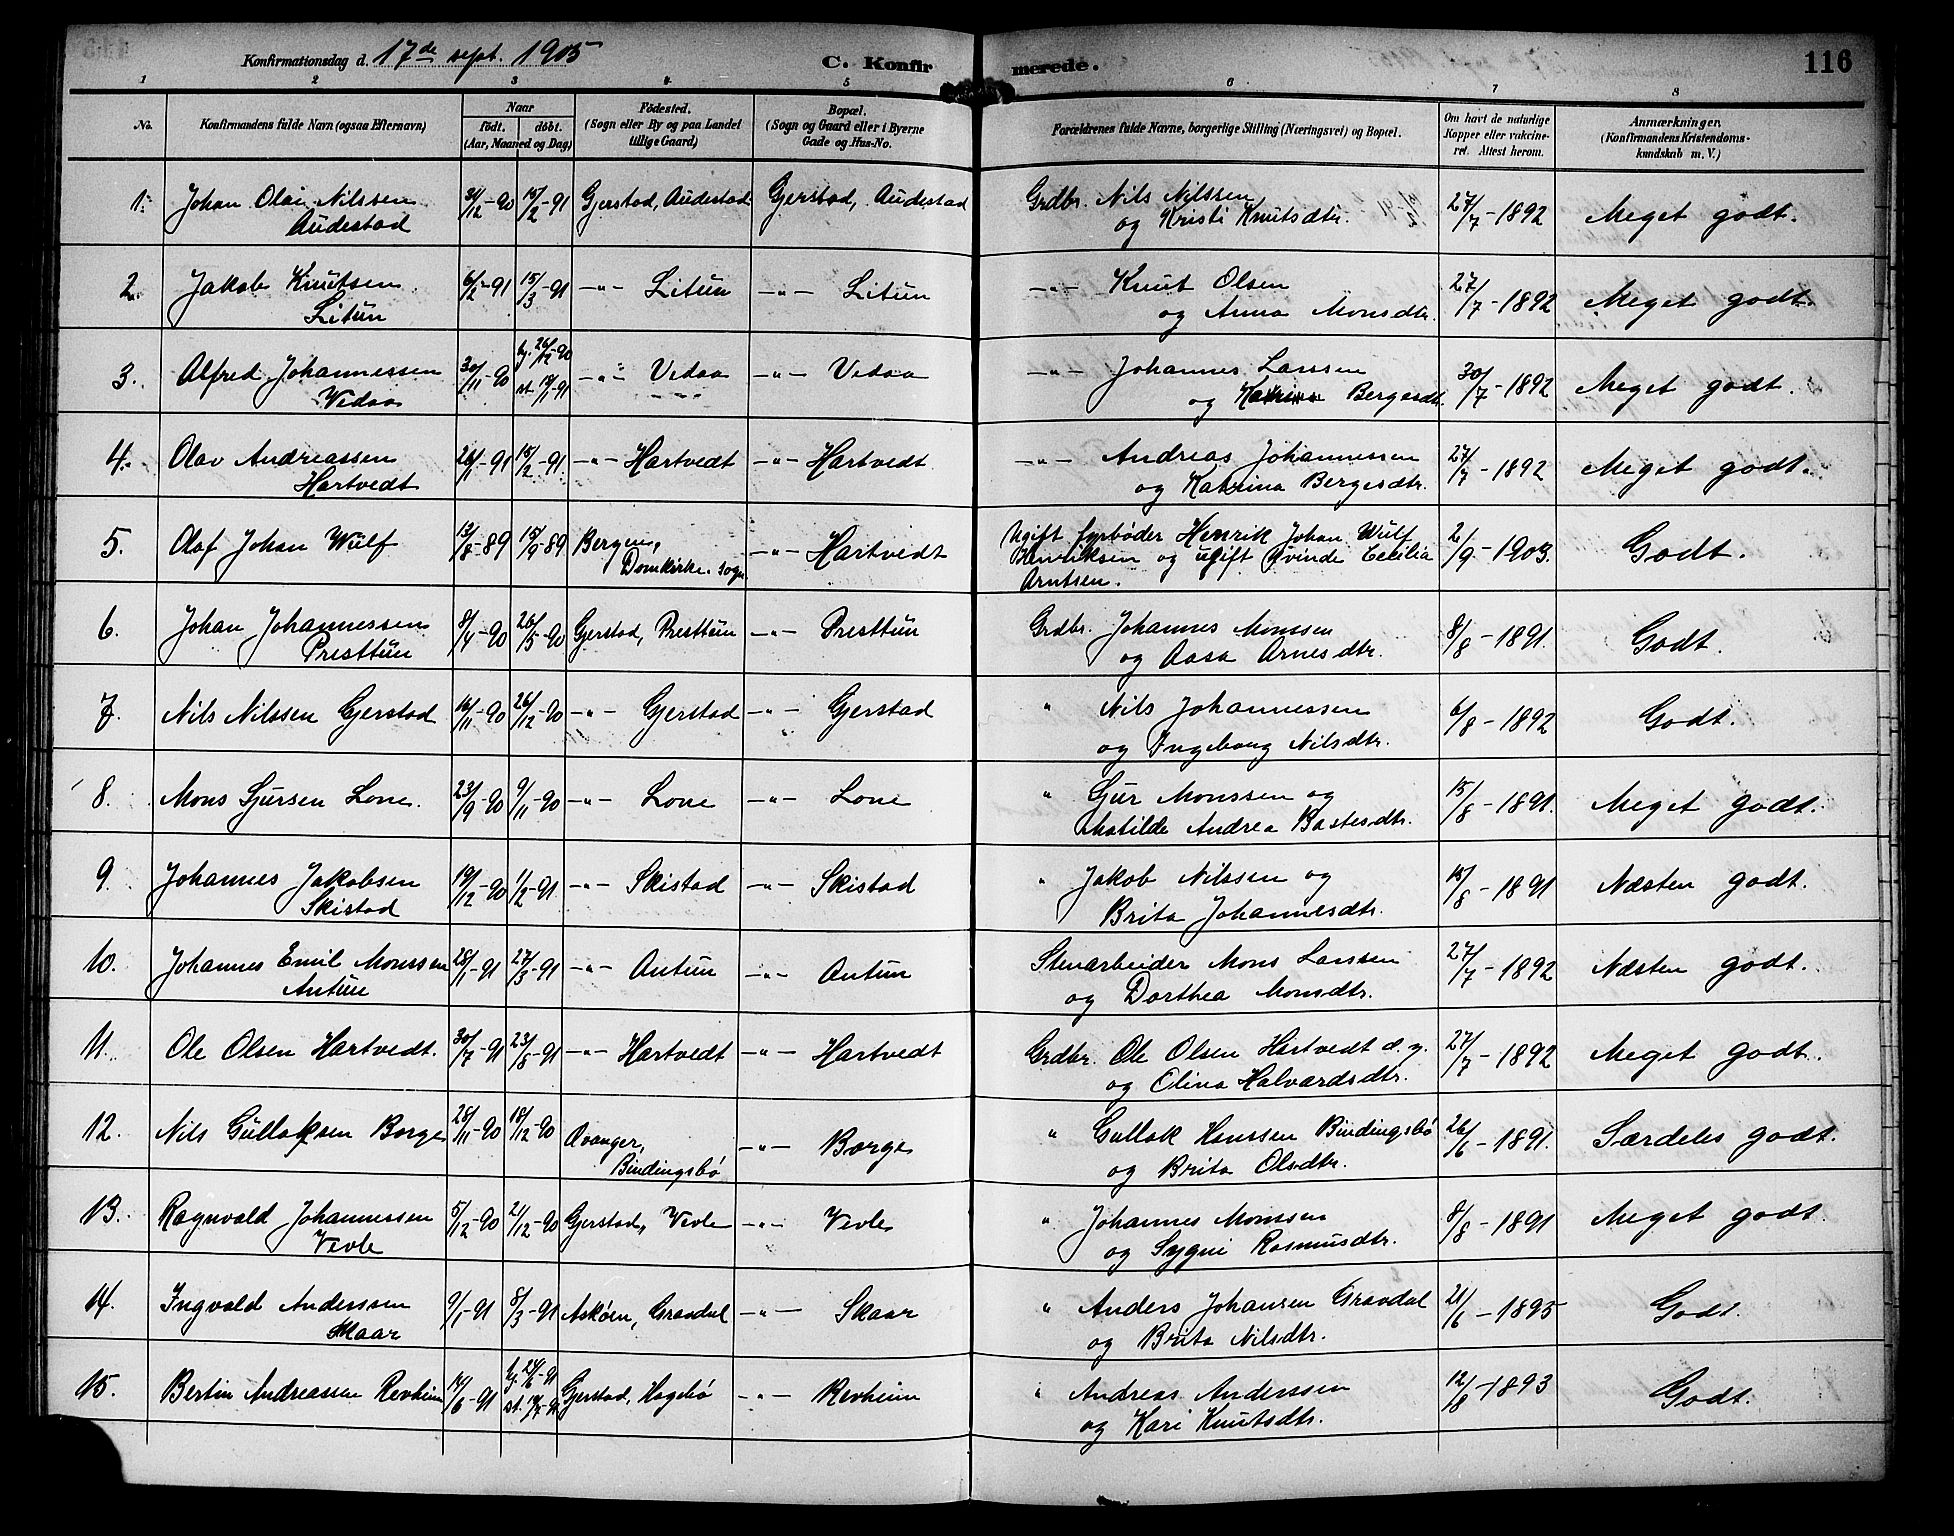 Konfirmationsdag d. 17de sept. 1905
C. Konfirmerede.
116
1 2 3 4 5 6 7 8
No.
Konfirmandens fulde Navn (ogsaa Efternavn)
Naar
født. døbt.
(Aar, Maaned og Dag)
Fødested.
(Sogn eller By og paa Landet
tillige Gaard)
Bopæl.
(Sogn og Gaard eller i Byerne
Gade og Hus-No.
Forældrenes fulde Navne, borgerlige Stilling (Næringsvei) og Bopæl.
Om havt de naturlige
Kopper eller vakcine-
ret. Attest herom.
Anmærkninger.
(Konfirmandens Kristendoms-
kundskab m. V.)
1. Johan Olai Nilssen 31/12-90 15/2-91 Gjerstad, Audestad Gjerstad, Audestad Grdbr. Nils Nilssen 27/7-1892 Meget godt.
Audestad og Kristi Knutsdtr.
2. Jakob Knutsen 6/2-91 15/3-91 -"- Litun -"- Litun -"- Knut Olsen 27/7-1892 Meget godt.
Litun og Anna Monsdtr.
3. Alfred Johannessen 30/11-90 hj. 26/12-90 -"- Vedaa -"- Vedaa -"- Johannes Larssen 30/7-1892 Meget godt.
Vedaa st. 18/1-91 og Bergesdtr.
4. Olav Andreassen 15/2-91. -"- Hartvedt -"- Hartvedt -"- Andreas Johannessen 27/7-1892 Meget godt.
Hartvedt og Katrina Bergesdtr.
5. Olaf Johan Wulf 13/8-89 15/9-89 Bergen, -"- Hartvedt Ugift fyrbøder Henrik Johan Wulf 2/9-1903. Godt.
Domkirke. sogn Henriksen og ugift Qvinde Cecilia
Arntsen.
6. Johan Johannessen 8/4-90 26/5-90 Gjerstad, Presttun -"- Presttun Grdbr. Johannes Monssen 8/8-1891. Godt.
Presttun og Aasa Arnesdtr.
7. Nils Nilssen Gjerstad 16/11-90 26/12-90 -"- Gjerstad -"- Gjerstad " Nils Johannessen 6/8-1892 Godt.
og Ingeborg Nilsdtr.
8. Mons Sjursen Lone. 23/9-90 9/11-90 -"- Lone -"- Lone " Monssen og 15/8-1891. Meget godt.
Matilde Andrea Bastesdtr.
9. Johannes Jakobsen 19/12-90 1/2-91 -"- Skistad -"- Skistad " Jakob Nilssen og 15/8-1891 Næsten godt.
Skistad Brita Johannesdtr.
10. Johannes Emil Monssen 28/1-91 27/3-91 -"- Antun -"- Antun Stenarbeider Mons Larssen 27/7-1892 Næsten godt.
Antun og Dorthea Monsdtr.
11. Ole Olsen Hartvedt. 30/7-91 23/8-91 -"- Hartvedt -"- Hartvedt Grdbr. Ole Olsen Hartvedt d. y. 27/7-1892 Meget godt.
og Olina Halvardsdtr.
12. Nils Gullaksen Borge 28/11-90 18/12-90 -"- Borge " Gullak Hanssen Bindingsbø 26/6-1891. Særdeles godt.
Bindingsbø og Brita Olsdtr.
13. Ragnvald Johannessen 5/12-90 21/12-90 Gjerstad, Vevle -"- Vevle " Johannes Monssen 8/8-1891 Meget godt.
Vevle og Sygni Rasmusdtr.
14. Ingvald Anderssen 9/1-91 8/3-91 Askøen, Gravdal -"- Skaar " Anders Johansen Gravdal 21/6-1895 Godt.
Skaar og Brita Nilsdtr.
15. Bertin Andreassen Revheim 14/6-91 Gjerstad, Hagebø -"- Revheim " Andreas Anderssen 12/8-1893 Godt.
og Kari Knutsdtr.